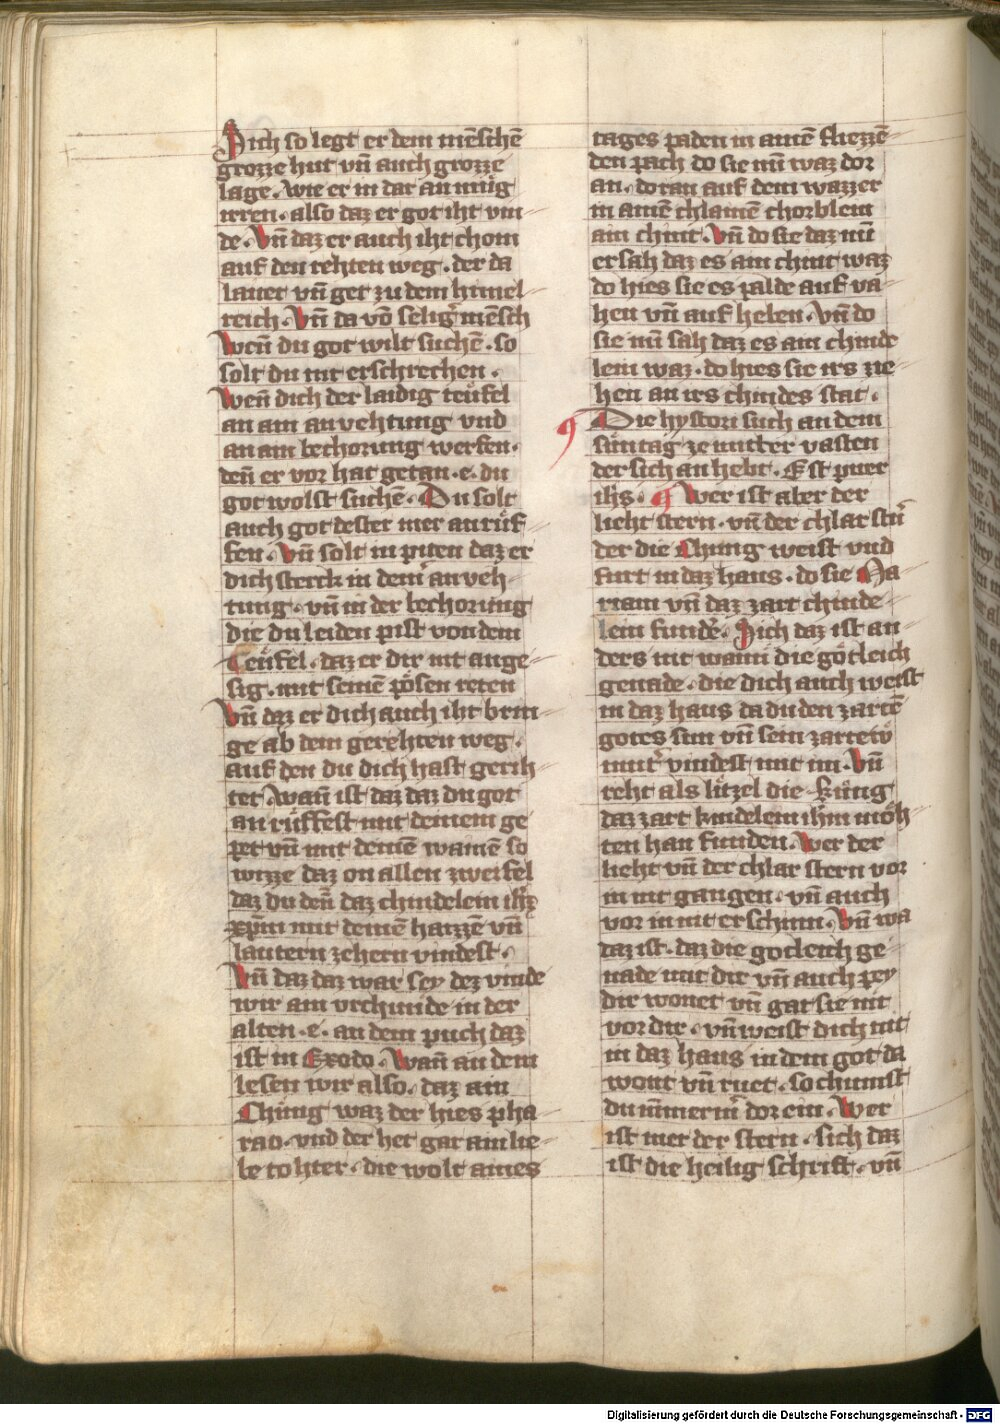 Sich so legt er dem mēschē
grozze hut vn̄ auch grozze
lage. wie er in dar an mu̇g
irren. also daz er got iht vin⸗
de. Vn̄ daz er auch iht chom
auf den rehten weg. der da
lauet vn̄ get zu dem himel⸗
reich. Vn̄ da vō seligʾ mēsch
Wen̄ du got wilt suchē. so
solt du nit erschrechen.
Wen̄ dich der laidig teu̇fel
an ain anvehtung vnd
an ain bechorung werfen.
den̄ er vor hat getan. e. du
got wolst suchē. Du solt
auch got dester mer an ru̇f⸗
fen. Vn̄ solt in piten daz er
dich sterck in dem anveh⸗
tung. vn̄ in der bechorung
die du leiden pist von dem
Teu̇fel. daz er dir nit ange⸗
sig. mit seinē po̊sen reten
Vn̄ daz er dich auch iht brin⸗
ge ab dem gerehten weg.
auf den du dich hast gerih⸗
tet. Wan̄ ist daz daz du got
an ru̇ffest mit deinem ge⸗
pet vn̄ mit deinē wainē so
wizze daz on allen zweifel
daz du den̄ daz chindelein ih̄m
xp̄m mit deinē haizzē vn̄
lautern zehern vindest.
Vn̄ daz daz war sey dez vinde
wir ain vrchunde in der
alten. e. an dem puch daz
ist in Exodo. Wan̄ an dem
lesen wir also. daz ain
Chu̇ng waz der hies pha⸗
rao. vnd der het gar ain lie⸗
be tohter. die wolt aines
tages paden in ainē fliezzē⸗
den pach do sie nu̇ waz dor
an. do ran auf dem wazzer
in ainē chlainē chorblein
ain chint. Vn̄ do sie daz nu̇
ersah daz es ain chint waz
do hies sie es palde auf va⸗
hen vn̄ auf heben. Vn̄ do
sie nu̇ sah daz es ain chinde
lein waz. do hies sie irs zie⸗
hen an irs chindes stat.
Die hystori such an dem
su̇ntag ze mitter vasten
der sich an hebt. Est puer
ih̄s. Wer ist aber der
lieht stern. vn̄ der chlar st'n̄
der die Chu̇ng weist vnd
furt in daz haus. do sie Ma⸗
riam vn̄ daz zart chinde⸗
lein fundē. Sich daz ist an⸗
ders nit wann̄ die go̊tleich
genade. die dich auch weist
in daz haus da du den zartē
gotes sun vn̄ sein zartew
mut' vindest mit im. Vn̄
reht als lu̇tzel die Ku̇ng
daz zart kindelein ih̄m mo̊h⸗
ten han funden. Wer der
lieht vn̄ der chlar stern vor
in nit gangen. vn̄ auch
vor in nit erschinn. Vn̄ wa
daz ist. daz die gotleich ge⸗
nade mit dir vn̄ auch pey
dir wonet vn̄ gat sie nit
vor dir. vn̄ weist dich nit
in daz haus in dem got da
wont vn̄ ruet. so chumst
du nimmerm̄ dor ein. Wer
ist mer der stern. sich daz
ist die heilig schrift. vn̄
Digitalisierung gefördert durch die Deutsche Forschungsgemeinschaft - DFG